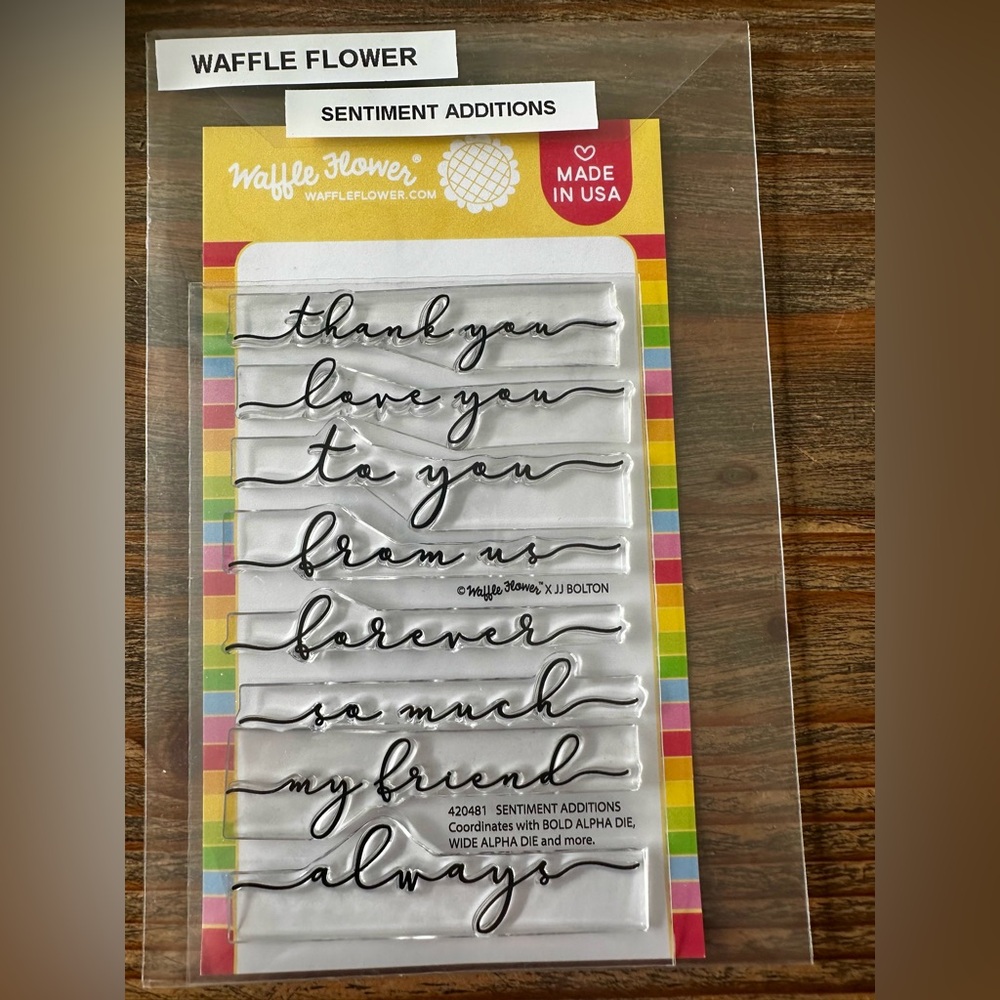 WAFFLE FLOWER
SENTIMENT ADDITIONS
Waffle Flower®
WAFFLEFLOWER.COM
MADE
IN USA
thank you
love you
to you
from us
© Waffle Flower™ X JJ BOLTON
forever
so much
my friend
420481 SENTIMENT ADDITIONS
Coordinates with BOLD ALPHA DIE,
WIDE ALPHA DIE and more.
always